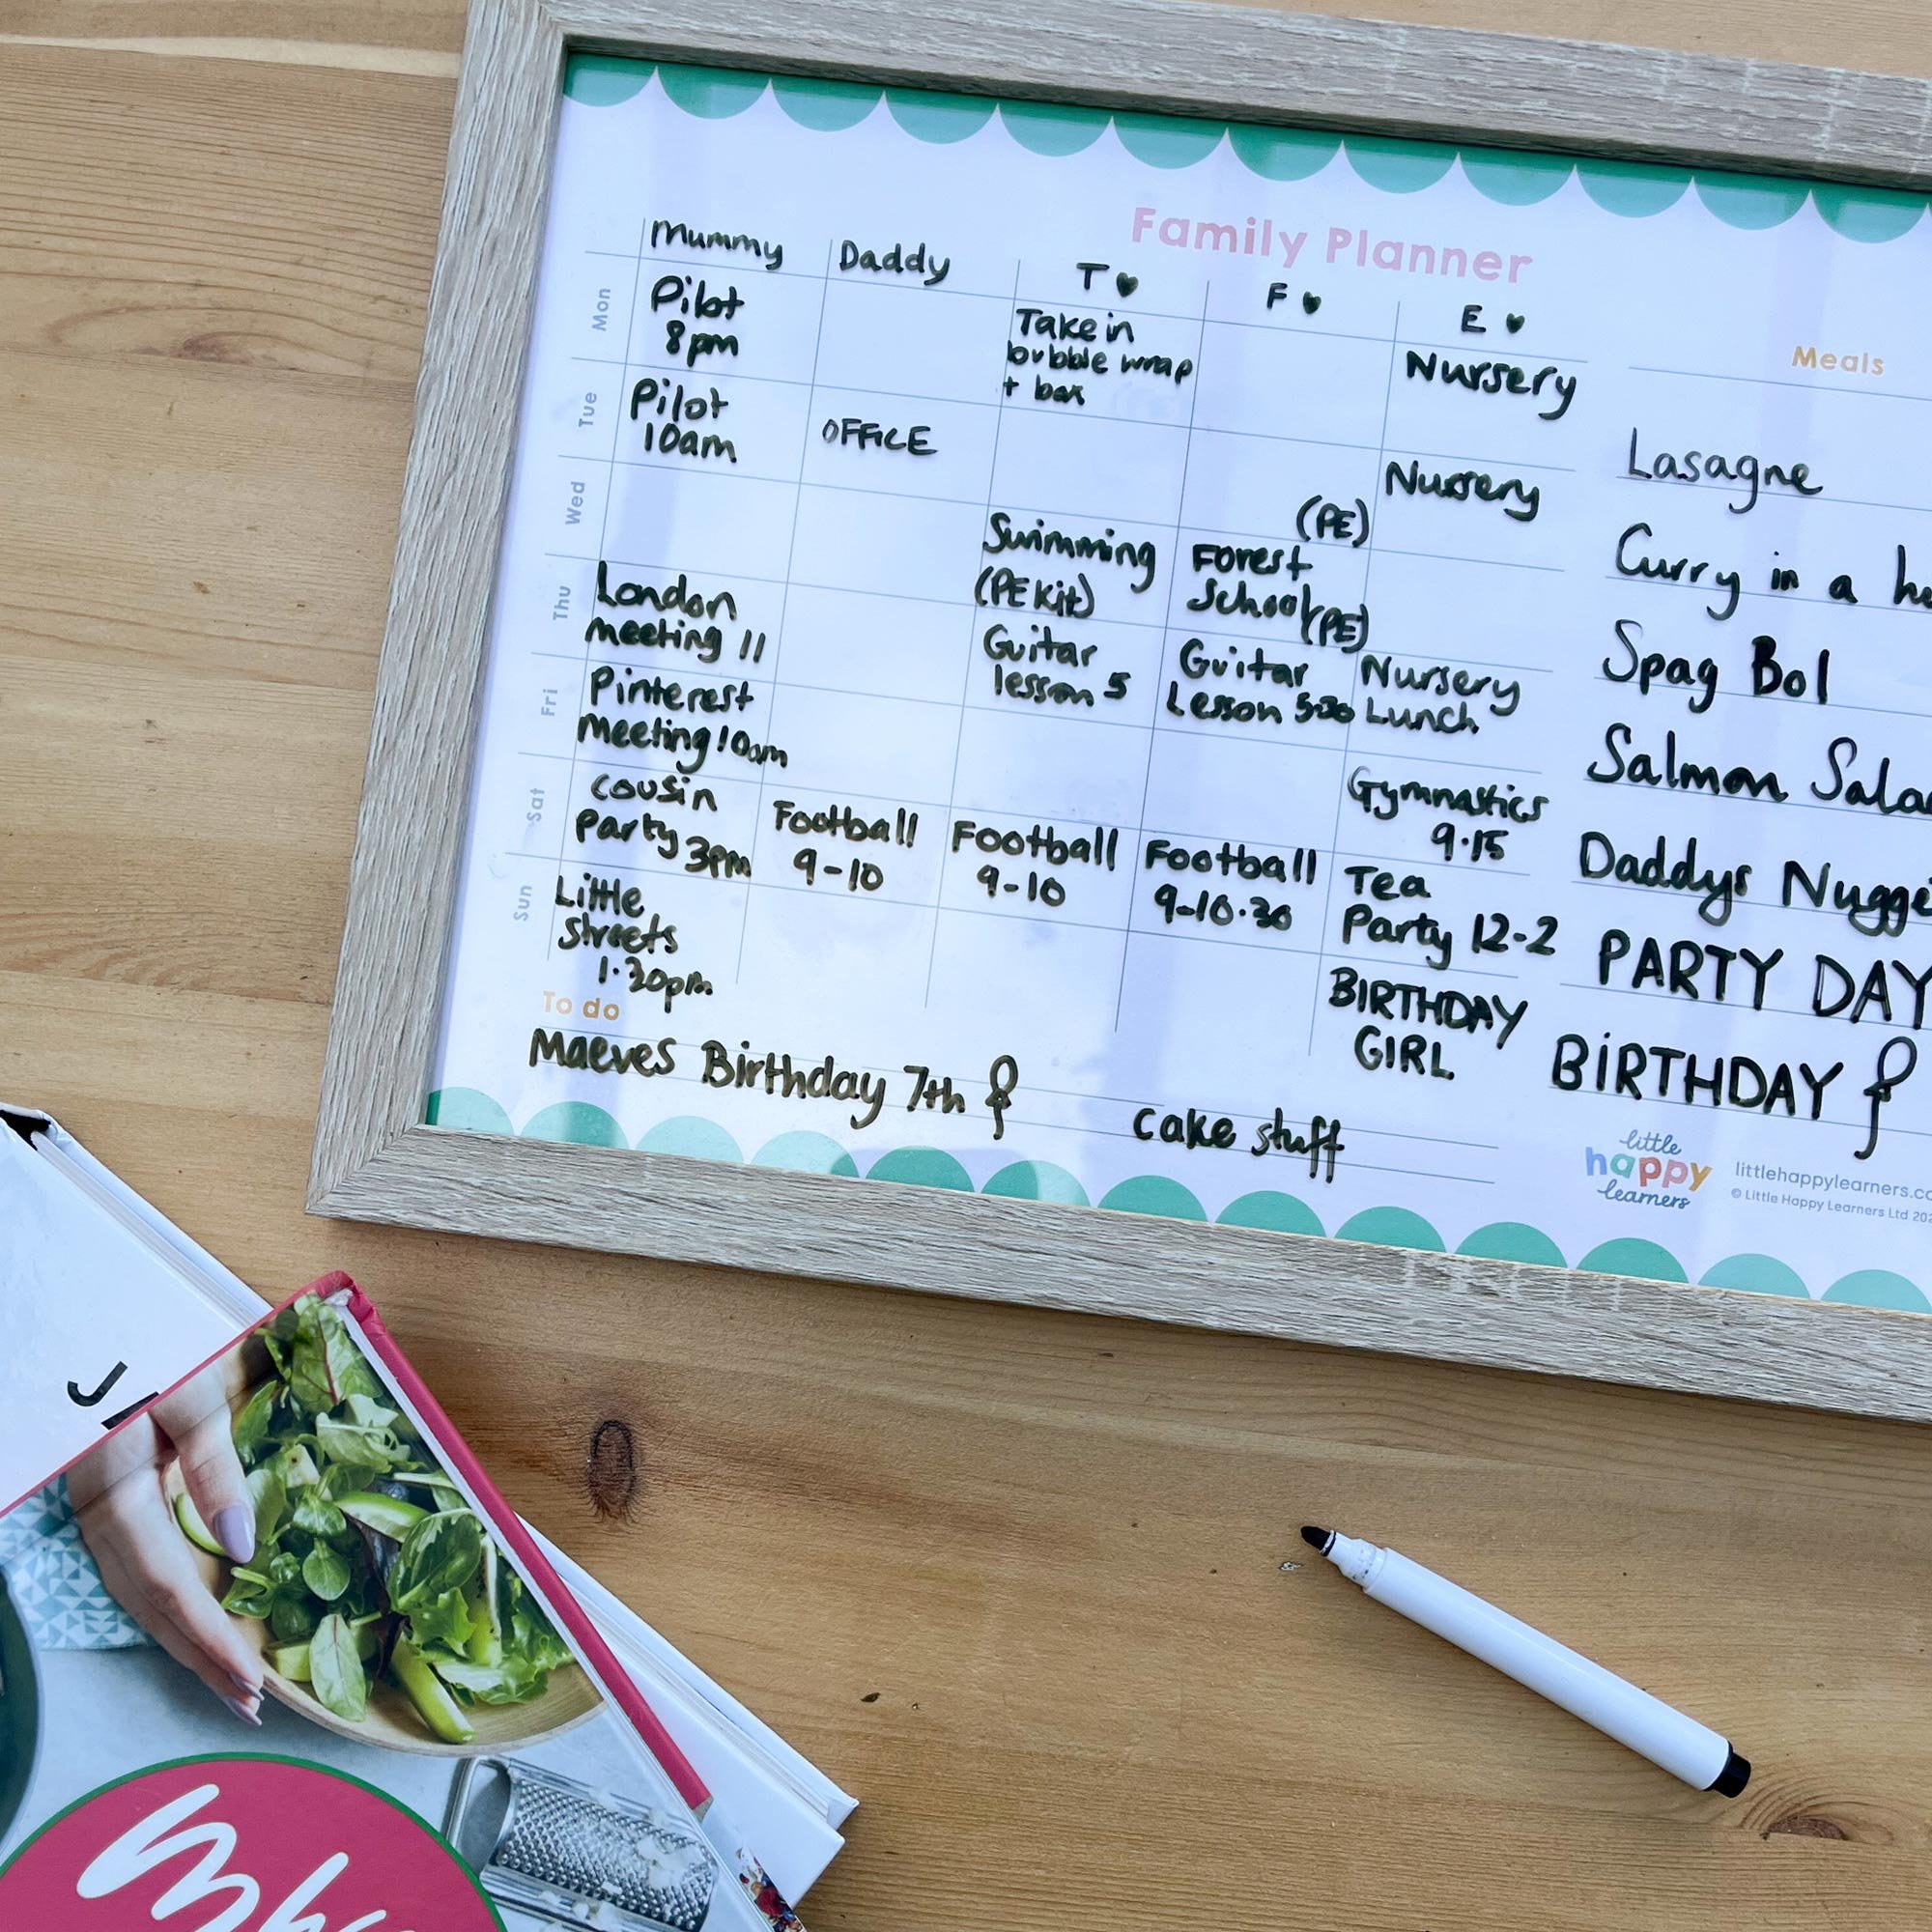 Family Planner
Mummy
Daddy
T
F
E
Meals
Mon
Pilot
8pm
Take in
bubble wrap
+ box
Nursery
Lasagne
Tue
Pilot
10am
OFFICE
Nursery
(PE)
Curry in a
Wed
Swimming
(PE Kit)
Forest
School (PE)
Spag Bol
Thu
London
meeting 11
Guitar
lesson 5
Guitar
Lesson 5:30
Nursery
Lunch
Salmon
Fri
Pinterest
Meeting 10am
Gymnastics
9.15
Daddys
Sat
Cousin
Party 3pm
Football
9-10
Football
9-10
Football
9-10.30
Tea
Party 12-2
PARTY DAY
Sun
Little
Streets
1.30pm
BIRTHDAY
GIRL
BIRTHDAY
To do
Maeves Birthday 7th
cake stuff
little
happy
learners
littlehappylearners.co
© Little Happy Learners Ltd 202